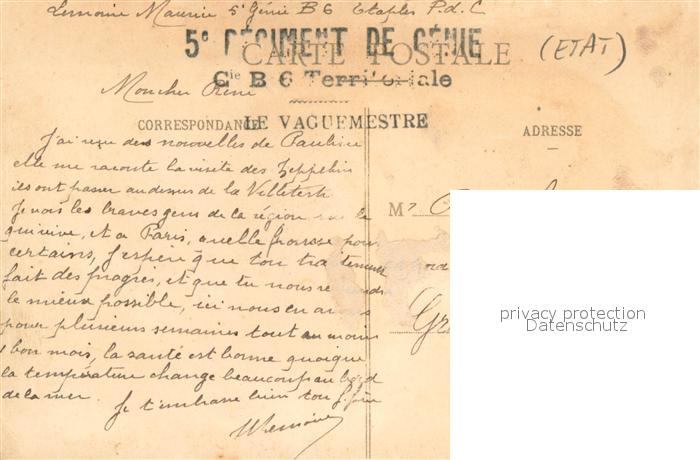 Lemoine Maurice 5e Génie B 6 Etaples P.d.C
5e RÉGIMENT DE GÉNIE
CARTE POSTALE
(ETAT)
Cie B 6 Territoriale
Mon cher René
LE VAGUEMESTRE
CORRESPONDANCE
ADRESSE
J'ai reçu des nouvelles de Pauline
elle me raconte la visite des Zeppelin
ils ont passer au dessus de la
Je vois les braves gens de la région sur le
qui vive, et a Paris, quelle frousse pour
certains, J'espère que ton
fait des progres, et que tu nous
le mieux possible, ici nous en avons
pour plusieurs semaines tout au moins
1 bon mois, la santé est bonne quoique
la température change beaucoup au bord
de la mer.
Je t'embrasse bien ton frère
MLemoine
M
Gr
privacy protection
Datenschutz